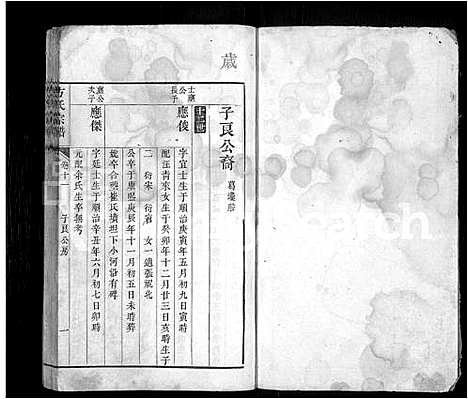 歲
子良公裔
葛壜胎
士應公長子
應俊
字宜士生于順治庚寅年五月初九日寅時
配汪靑求女生于癸卯年十二月廿三日亥時生子
二 衍宋 衍宿 女一適張琥北
公卒于康熙庚辰年十一月初五日未時葬
妣卒合葬崔氏墳坦下小河沿有碑
應公次子
應傑
字延士生于順治辛丑年六月初七日卯時
元配余氏生卒無考
方氏宗譜
卷十一
子良公房
一